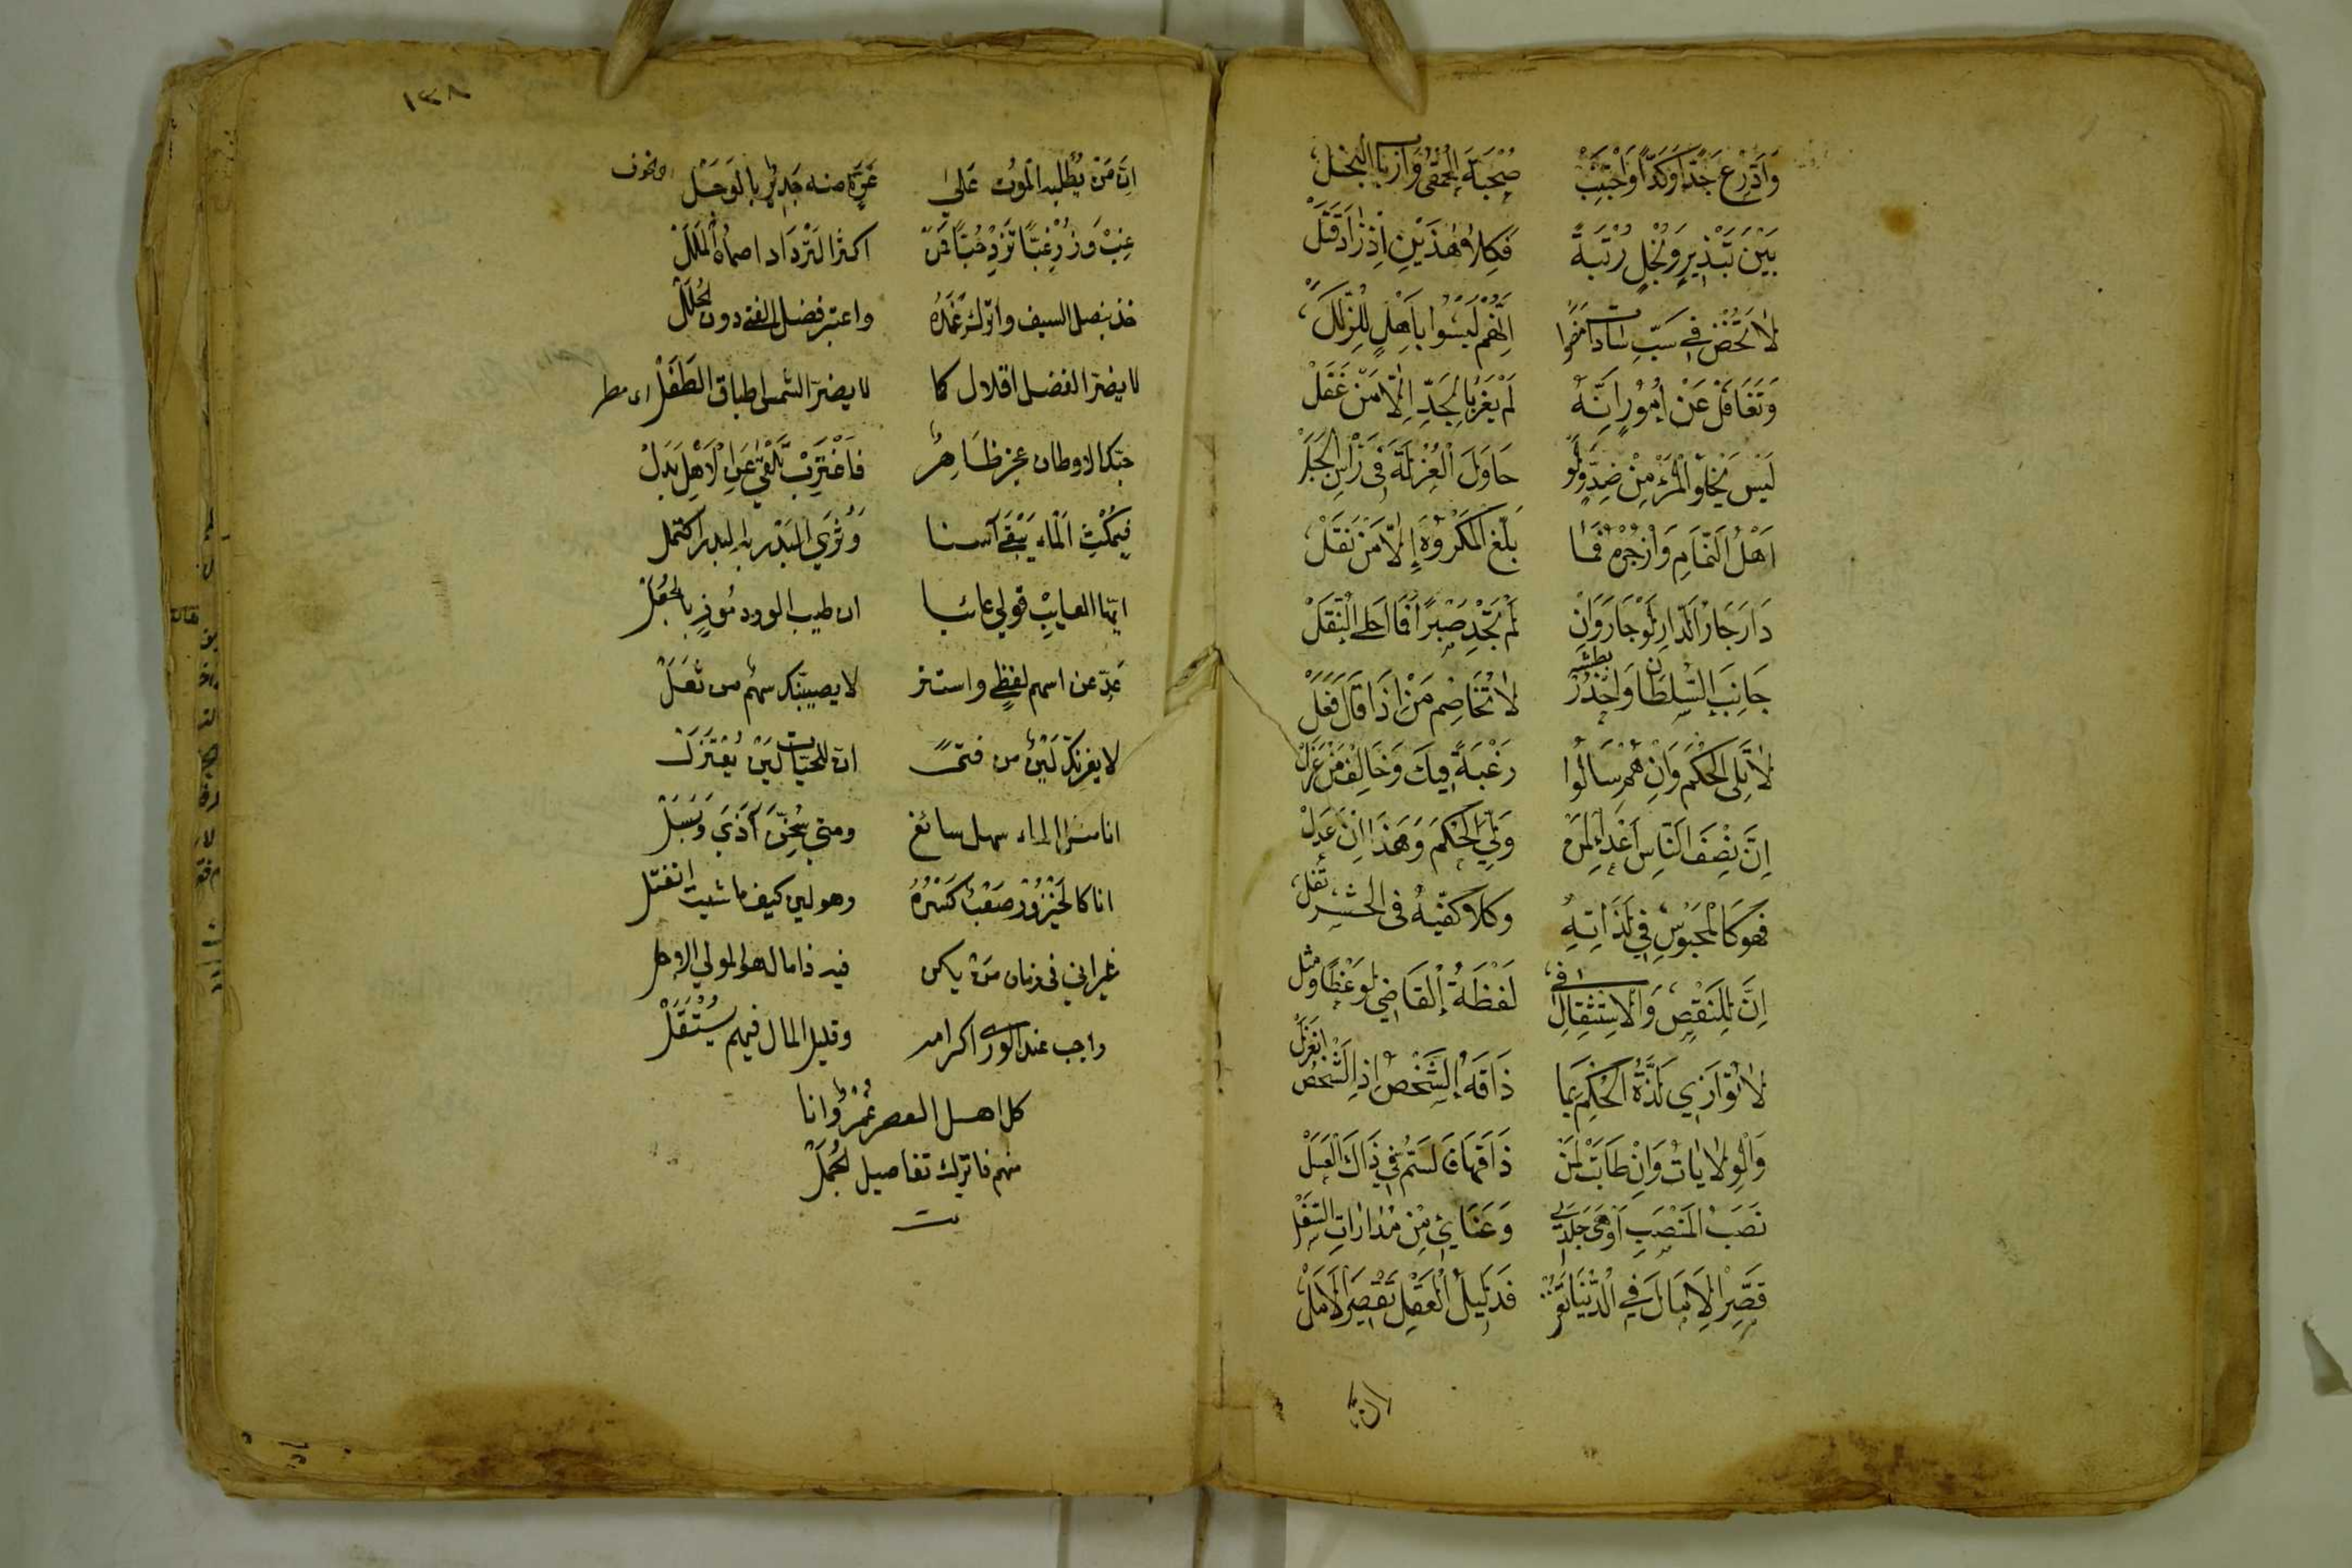 وَادَّرِعْ جَدًّا وَكَدًّا وَاجْتَنِبْ صُحْبَةَ الْحُمْقٰى وَأَرْبَابِ الْبَخَلْ
بَيْنَ تَبْذِيرٍ وَبُخْلٍ رُتْبَةً فَكِلَا هٰذَيْنِ إِذْ زَادَ قَتَلْ
لَا تَخُضْ فِي سَبِّ سَادَاتٍ مَضَوْا اِنَّهُمْ لَيْسُوا بِأَهْلٍ لِلزَّلَلْ
وَتَغَافَلْ عَنْ اُمُورٍ اِنَّهُ لَمْ يَفُزْ بِالْحَمْدِ اِلَّا مَنْ غَفَلْ
لَيْسَ يَخْلُو الْمَرْءُ مِنْ ضِدٍّ وَلَوْ حَاوَلَ الْعُزْلَةَ فِى رَأْسِ الْجَبَلْ
اَهْلُ النَّمَّامِ وَازْجُرْهُ فَمَا بَلَّغَ الْمَكْرُوهَ إِلَّا مَنْ نَقَلْ
دَارِ جَارَ الدَّارِ لَوْ جَارَ وَاِنْ لَمْ تَجِدْ صَبْرًا فَمَا اَحْلَى النُّقَلْ
جَانِبِ السُّلْطَانَ وَاحْذَرْ بطشه لَا تُخَاصِمْ مَنْ اِذَا قَالَ فَعَلْ
لَا تَلِى الْحُكْمَ وَاِنْ هُمْ سَأَلُوا رَغْبَةً فِيكَ وَخَالِفْ مَنْ عَزَلْ
اِنَّ نِصْفَ النَّاسِ اَعْدَاءٌ لِمَنْ وَلِيَ الْحُكْمَ وَهَذَا اِنْ عَدَلْ
فَهُوَ كَالْمَحْبُوسِ فِي لَذَّاتِهِ وكلا كفّيه فى الحشر تُغَلْ
اِنَّ لِلنَّقْصِ وَالْاِسْتِثْقَالِ فِى لَفْظَةُ الْقَاضِي لَوَعْظًا وَمثل
لَا تُوَازِي لَذَّةُ الْحُكْمِ بِمَا ذَاقَهُ الشَّخْصُ اِذَا الشَّخْصُ انعَزَلْ
وَالْوِلَايَاتُ وَاِنْ طَابَتْ لِمَنْ ذَاقَهَا فَالسُّمُّ فِي ذَاكَ الْعَسَلْ
نَصَبُ الْمَنْصَبِ اَوْهَى جَلَدِي وَعَنَائِي مِنْ مُدَارَاتِ السَّفَلْ
قَصِّرِ الْآمَالَ فِي الدُّنْيَا تَفُزْ فَدَلِيلُ الْعَقْلِ تَقْصِيرُ الْاَمَلْ
ان
١٣٨
اِنَّ مَنْ يَطْلُبُهُ الْمَوْتُ عَلٰى غِرَّةٍ منه جَدِيْرٌ بِالْوَجَلْ
غِبْ وَزُرْ غِبًّا تَزِدْ حُبًّا فَمَنْ اكثرَ التَّرْدَاد اصماه الْمَلَلْ
خذ بنصل السيف واترك غِمْدَهُ واعتبر فضل الفتى دون الحُلَلْ
لا يضرّ الفضل اقلال كما لا يضرّ الشمس اطباق الطَفَلْ
حبّك الاوطان عجز ظَاهِرٌ فَاغْتَرِبْ تَلْقَ عَنِ الْاَهْلِ بَدَلْ
فَبِمُكْثِ الْمَاءِ يَبْقَى آسنا وَسُرَي الْبَدْرِ به البدر اكتمل
ايّها العايب قولي عائبا ان طيب الورد مُوذٍ بالجُعَلْ
عَدِّ عن اسهم لفظي واستتر لا يصيبنّك سهمٌ من ثُعَلْ
لا يغرنّك لَيْنٌ من فتى انّ للحيّات لَيْنٌ يُعْتَزَلْ
انا مثل الماء سهل سائغ ومتى سُخِّنَ آذَى وَقَتَلْ
انا كالخَيْزُورِ صَعْبٌ كَسْرُهُ وهو لين كيف ما شيت انفتل
غير اني فى زمان من يكن فيه ذا مال هو المولي الاجل
واجب عند الورى اكرامه وقليل المال فيهم يُسْتَقَلْ
كل اهل العصر غُمْرٌ وانا
منهم فاترك تفاصيل الجُمَلْ